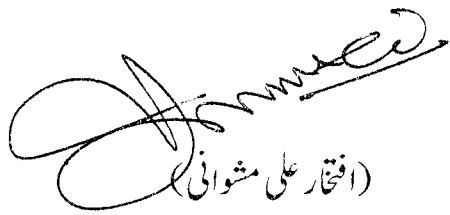 (افتخار علی مشوانی)